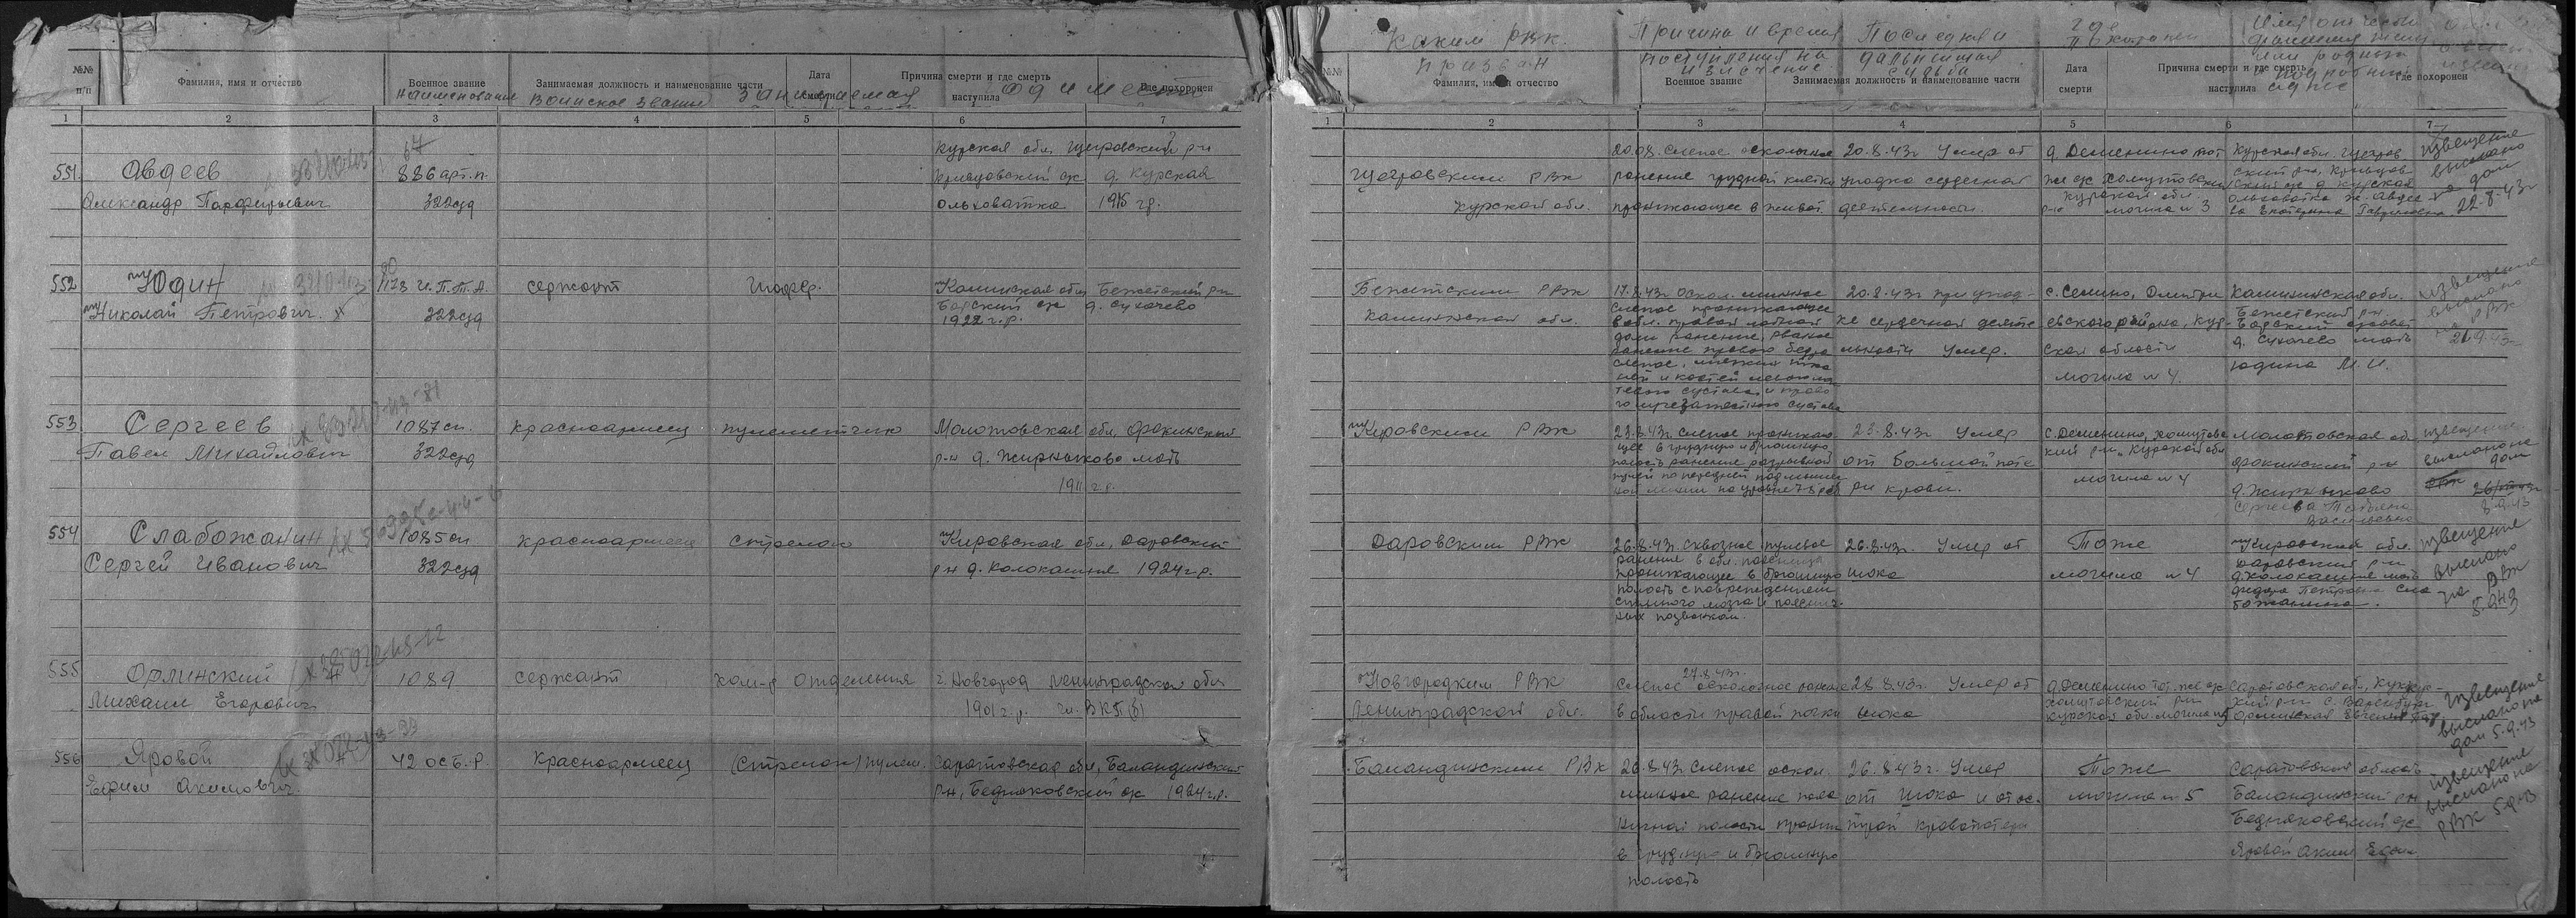 №№ п/п
Фамилия, имя и отчество
Военное звание
Наименование
Занимаемая должность и наименование части
Воинское звание
Дата смерти
Занимаемая
Причина смерти и где смерть наступила
Где похоронен
1 2 3 4 5 6 7
551. Авдеев
Александр Парфирьевич
886 арт. п.
322 сд
Курская обл, Щигровский р-н
Кривцовский с/с д. Курская
Ольховатка 1915 г.р.
552 Юдин
Николай Петрович
1173 И.П.Т.А.
322 сд
сержант
Шофер.
Калининская обл, Бежетский р-н
Борский с/с д. Сукачево
1922 г.р.
553 Сергеев
Павел Михайлович
1087 сп.
322 сд
Красноармеец
пулеметчик
Молотовская обл. Фокинский
р-н д. Жирныково мать
1911 г.р.
554 Слабожанин
Сергей Иванович
1085 сп
322 сд
красноармеец
стрелок
Кировская обл, Даровский
р-н д. Колокашня 1924 г.р.
555 Орлинский
Михаил Егорович
1089
сержант
ком-р отделения
г. Новгород Ленинградской обл
1901 г.р. чл. ВКП(б)
556 Яровой
Ефим Акимович.
42 ос б. Р.
Красноармеец
(Стрелок) пулем.
Саратовская обл, Баландинский
р-н, Бедняковский с/с 1924 г.р.
Каким РВК.
призван
Причина и время
поступления на
излечение
Последняя
дальнейшая
судьба
где
похоронен
Имя отчество
фамилия жены
или родных
подробный
адрес
№№
Фамилия, имя и отчество
Военное звание
Занимаемая должность и наименование части
Дата смерти
Причина смерти и где смерть наступила
Где похоронен
1 2 3 4 5 6 7
Щигровским РВК
Курской обл.
20.08. Слепое осколочное
ранение грудной клетки
проникающее в живот.
20.8.43г Умер от
упадка сердечной
деятельности.
д. Деменино тот
же с/с Хомутовский
р-на Курской обл
могила № 3
Курская обл. Щигров
ский р-н, Кривцов
ский с/с д. Курская
Ольховатка ж. Авдее
ва Екатерина Гавриловна
извещение
выслано
на дом
22-8-43г
Бежетским РВК
Калининской обл.
17.8.43г Оскол. минное
слепое проникающее
в обл. правой лобной
доли ранение, рваное
ранение правого бедра
20.8.43г при упад-
ке сердечной деяте
льности Умер.
с. Селино, Дмитри
евского района, Кур-
ской области
могила № 4.
Калининская обл.
Бежетский р-н.
Борский с/совет
д. Сукачево мать
Юдина М. И.
извещение
выслано
на РВК
21.9.43г
Кировским РВК
23.8.43г. Слепое проникаю
щее в грудную и брюшную
полость ранение разрывной
пулей по передней подмышеч
ной линии на уровне 7-8 реб
23.8.43г Умер
от большой поте
ри крови.
с. Деменино, Хомутовс
кий р-н, Курской обл
могила № 4
Молотовская об.
Фокинский р-н
д. Жирныково
Сергеева Татьяна
Васильевна
извещение
выслано на
дом
5.9.43
Даровским РВК
26.8.43г. Сквозное пулевое
ранение в обл. поясницы
проникающее в брюшную
полость с повреждением
спинного мозга и пояснич
ных позвонков.
26.8.43г. Умер от
шока
То же
могила № 4
Кировская обл.
Даровский р-н
д. Колокашня мать
Федора Петровна Сла
божанина.
извещение
выслано
на РВК
5.9.43
Новгородким РВК
Ленинградской обл.
27.8.43г.
Слепое осколочное ранение
в области правой почки
28.8.43г. Умер от
шока
д. Деменино тот же с/с
Хомутовский р-н
Курской обл. могила № 5
Саратовская об,
кий р-н с.
Орлинская
извещение
выслано на
дом 5.9.43
Баландинским РВК
26.8.43г. Слепое оскол.
минное ранение пояс
ничной полости проник
в грудную и брюшную
полость
26.8.43г. Умер
от шока и от ос.
трой кровопотери
То же
могила № 5
Саратовская область
Баландинский р-н
Бедняковский с/с
Яровой Аким
извещение
выслано на
РВК 5.9.43